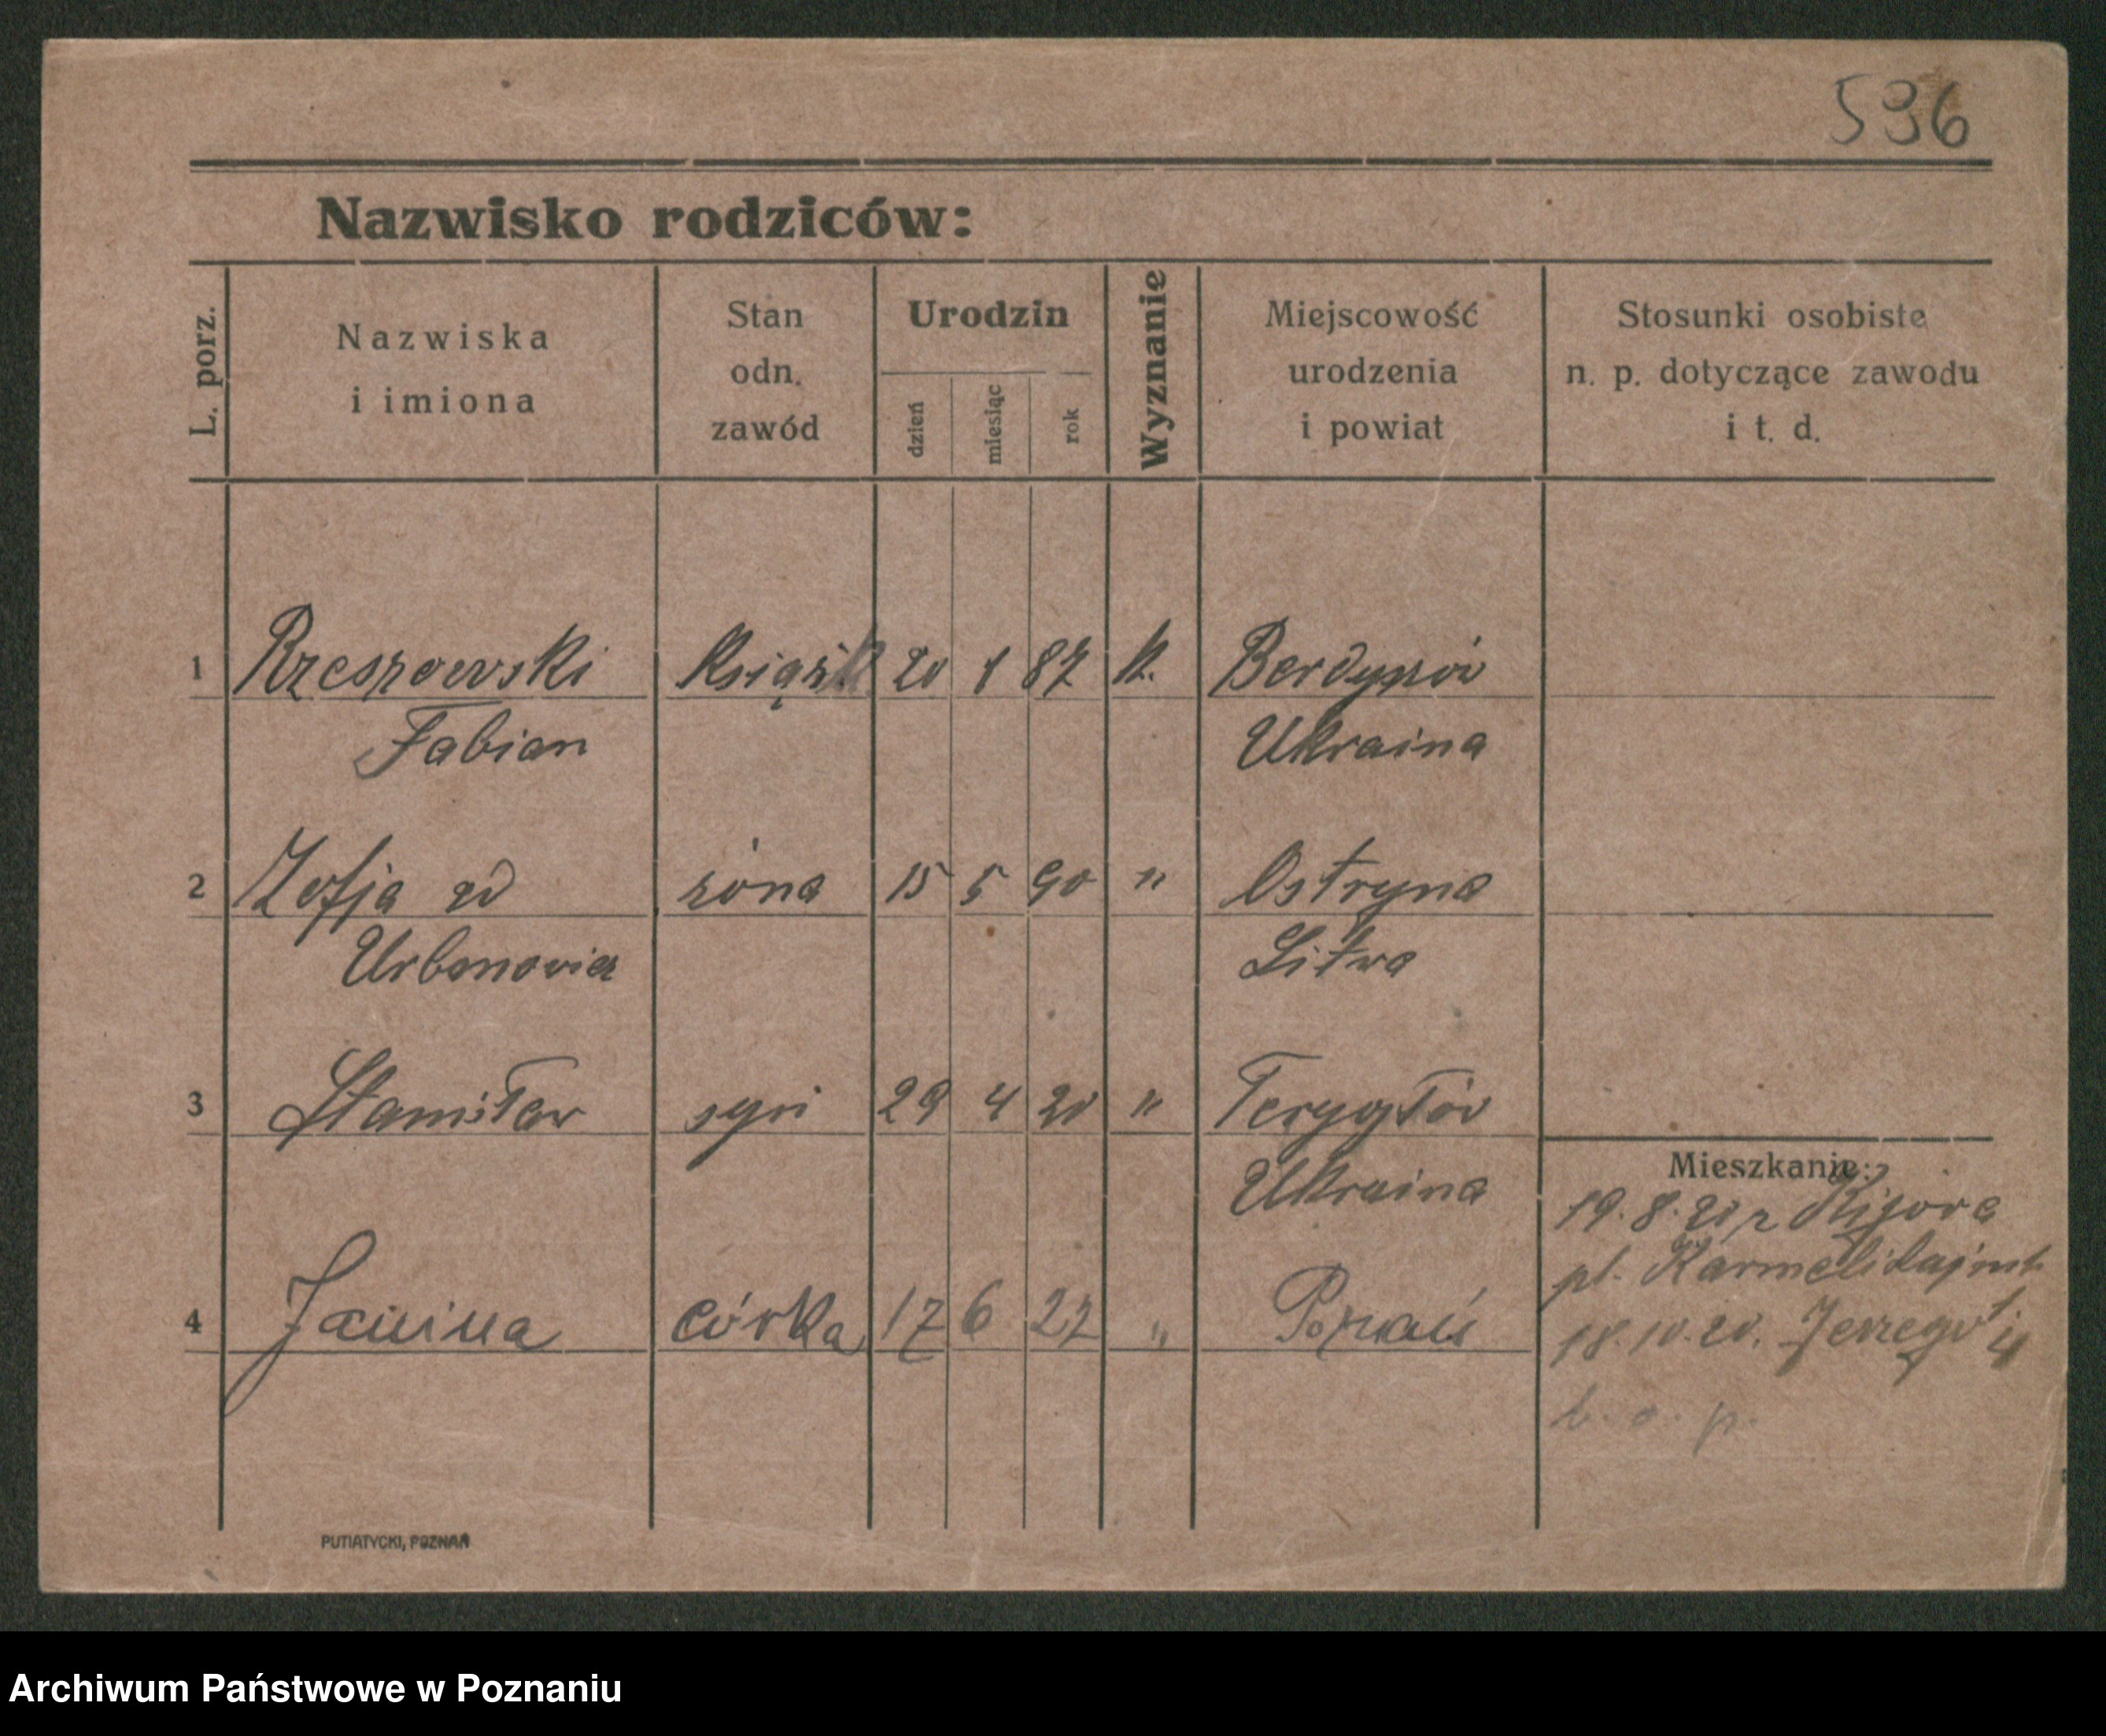 536
Nazwisko rodziców:
L. porz.
Nazwiska
i imiona
Stan
odn.
zawód
Urodzin
dzień
miesiąc
rok
Wyznanie
Miejscowość
urodzenia
i powiat
Stosunki osobiste
n. p. dotyczące zawodu
i t. d.
1 Rzeszowski 20 1 87 k.
Fabian Ukraina
2 Zofja zd żona 15 5 90 " Ostryna
Urbanowicz Litwa
3 Stanisław syn 29 4 20 "
Ukraina
Mieszkanie:
19. 8. 20 z Kijowa
pl.
4 Janina córka 17 6 27 " Poznań
18. 10. 20. Jerzego
b. o. p.
PUTIATYCKI, POZNAŃ
Archiwum Państwowe w Poznaniu